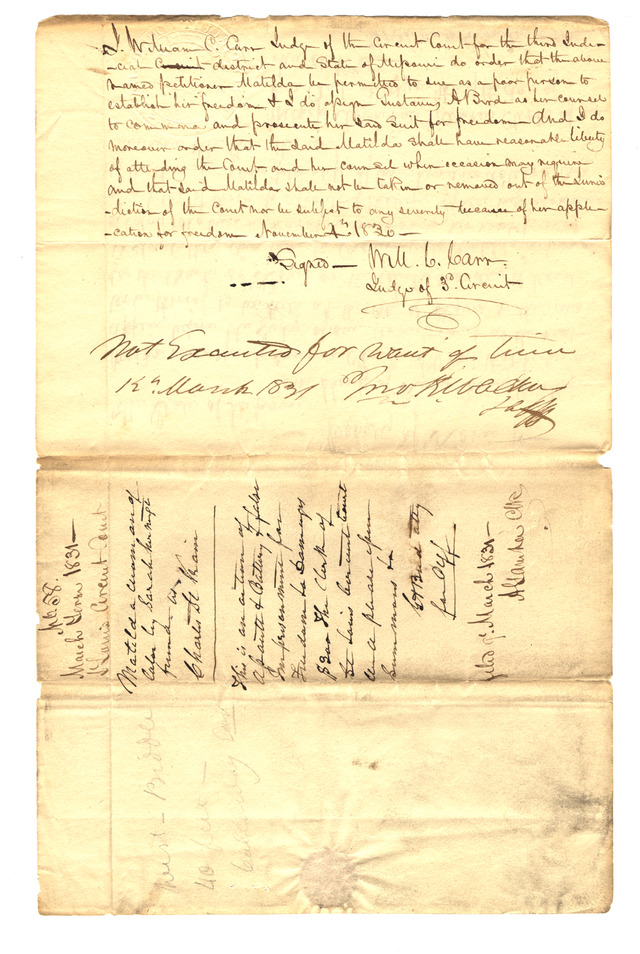 I. William C. Carr Judge of the Circuit Court for the third Judi-
-cial Circuit district and State of Missouri do order that the above
named petitioner Matilda be permitted to sue as a poor person to
establish her freedom & I do assign Gustavus A Bird as her counsel
to commence and prosecute her said suit for freedom And I do
moreover order that the said Matilda shall have reasonable liberty
of attending the Court and her counsel when occasion may require
and that said Matilda shall not be taken or removed out of the juris-
-diction of the Court nor be subject to any severity because of her appli-
-cation for freedom November 4th 1830 -
Signed - Will. C. Carr
Judge of 3d. Circuit
Not Executed for want of time
12th March 1831
No 58.
March Term 1831 -
St Louis Circuit Court
Matilda a woman of
color by Sarah her next
friend vs
Charles St Vrain
This is an action of
assault & Battery & false
Imprisonment for
Freedom
The Clerk of
St Louis Circuit Court
will please issue
Summons &c
G A Bird atty
for Plff
filed 9. March 1831 -
Clk
west - Biddle
40 feet -